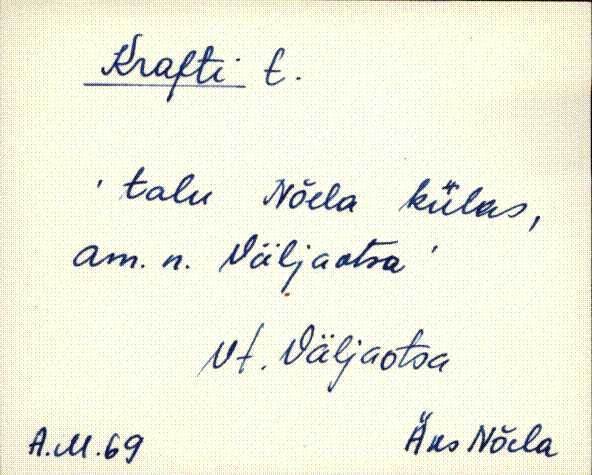 Krafti t.
'talu Nõela külas,
am. n. Väljaotsa'
Vt. Väljaotsa
A.M.69 Äks Nõela